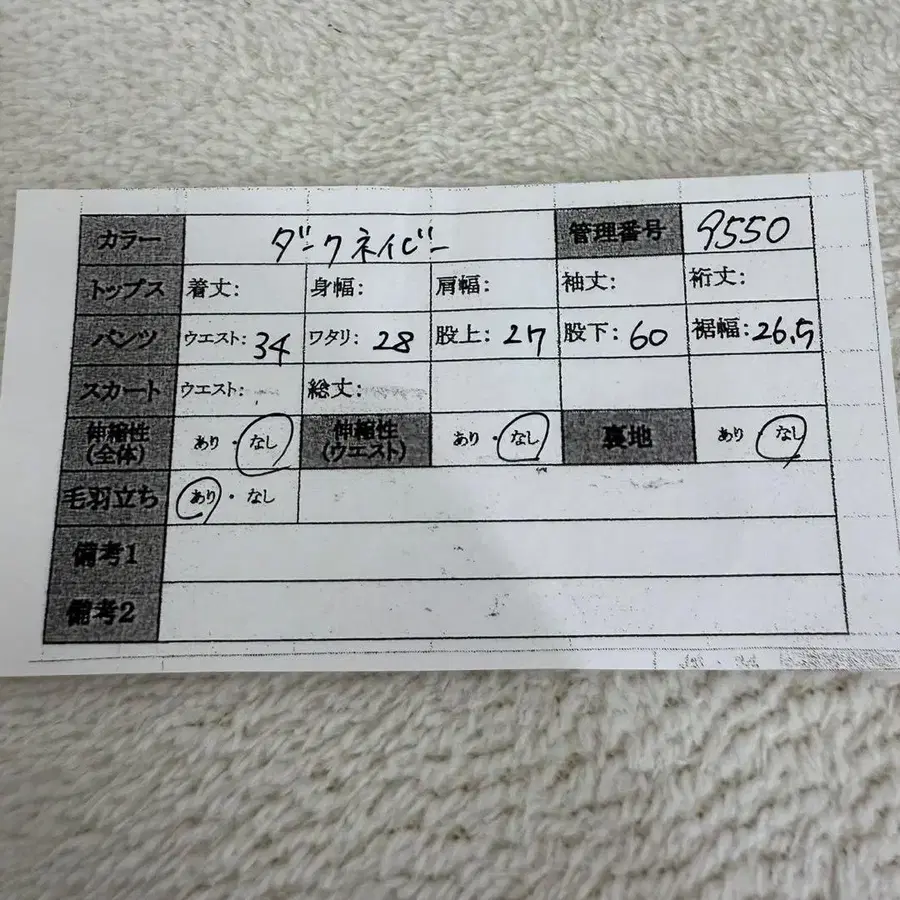 カラー ダークネイビー 管理番号 9550
トップス 着丈: 身幅: 肩幅: 袖丈: 裄丈:
パンツ ウエスト: 34 ワタリ: 28 股上: 27 股下: 60 裾幅: 26.5
スカート ウエスト: 総丈:
伸縮性(全体) あり・なし 伸縮性(ウエスト) あり・なし 裏地 あり なし
毛羽立ち あり・なし
備考1
備考2